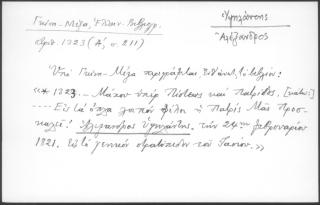 Γκίνη - Μέξα, Ἑλλην. Βιβλιογρ.
ἀριθ. 1323 (Α', σ. 211)
Ὑψηλάντης
Ἀλέξανδρος
Ὑπὸ Γκίνη - Μέξα περιγράφεται τὸ βιβλίον:
«* 1323. - Μάχου ὑπὲρ Πίστεως καὶ Πατρίδος. [κάτω:]
Εἰς τὰ ὅπλα λοιπὸν φίλοι ἡ Πατρὶς Μᾶς Προσ-
καλεῖ! Ἀλέξανδρος Ὑψηλάντης. τὴν 24ην Φεβρουαρίου
1821. Εἰς τὸ γενικὸν στρατόπεδον τοῦ Ἰασίου.»